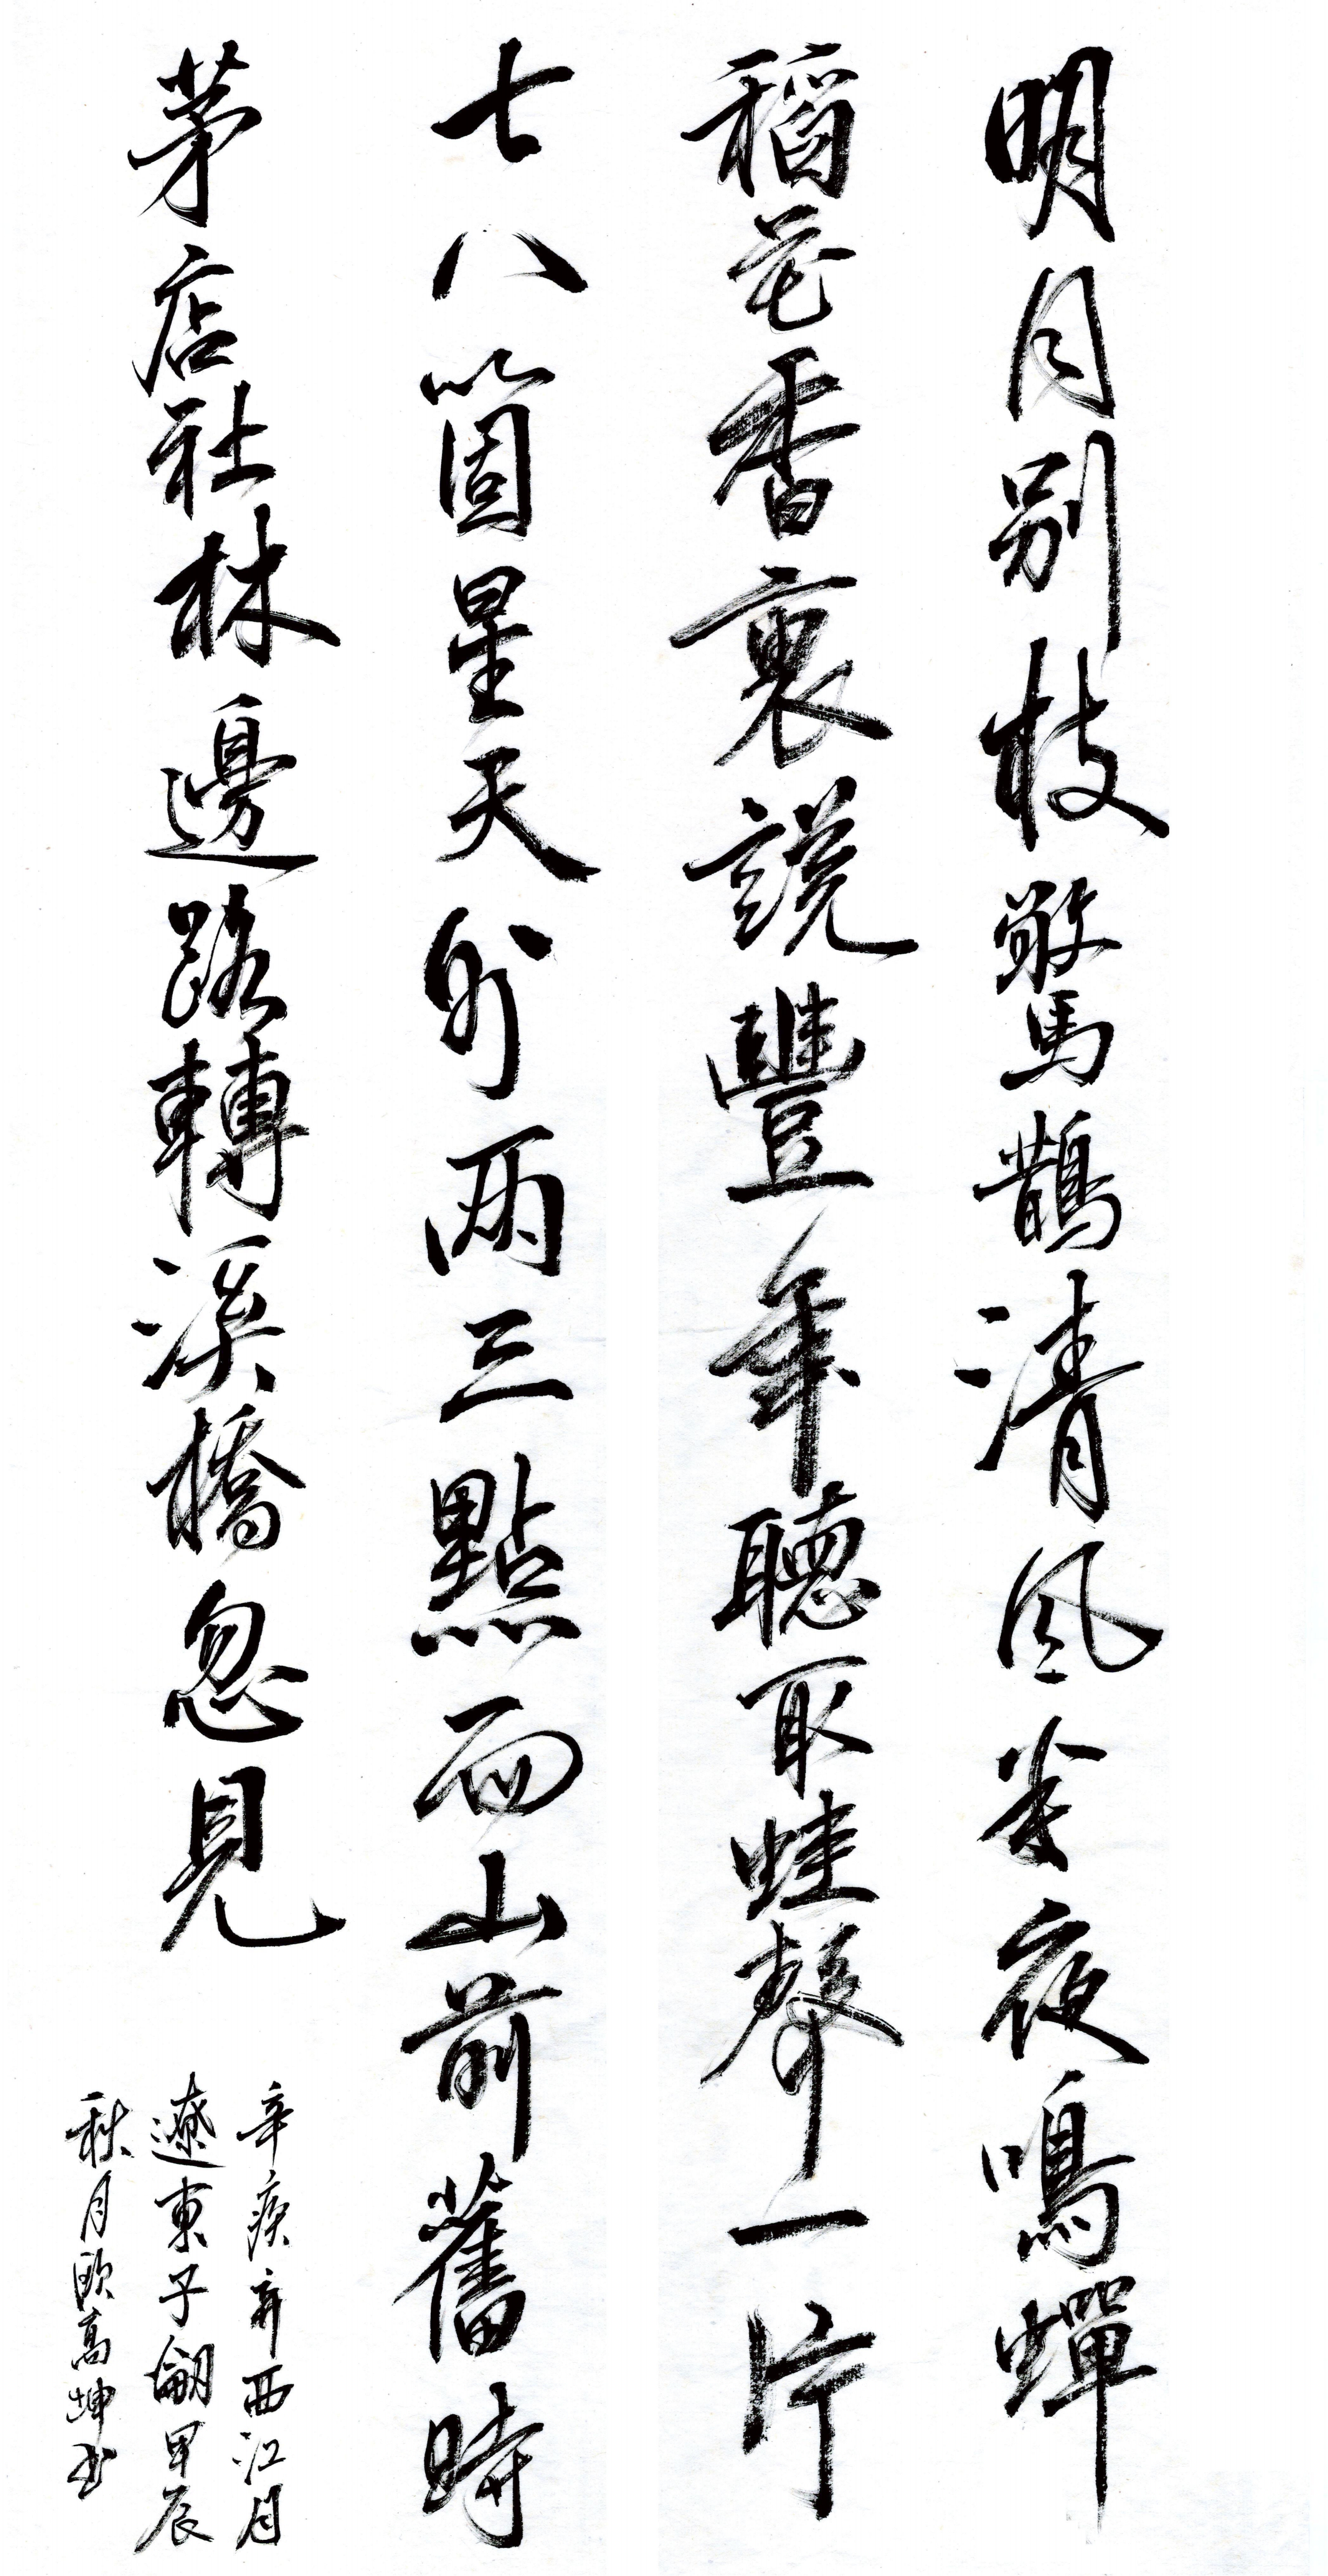 明月別枝驚鵲清風半夜鳴蟬
稻花香裏說豐年聽取蛙聲一片
七八箇星天外兩三點雨山前舊時
茅店社林邊路轉溪橋忽見
辛疾弃西江月
遼東子翩甲辰
秋月歐高坤书